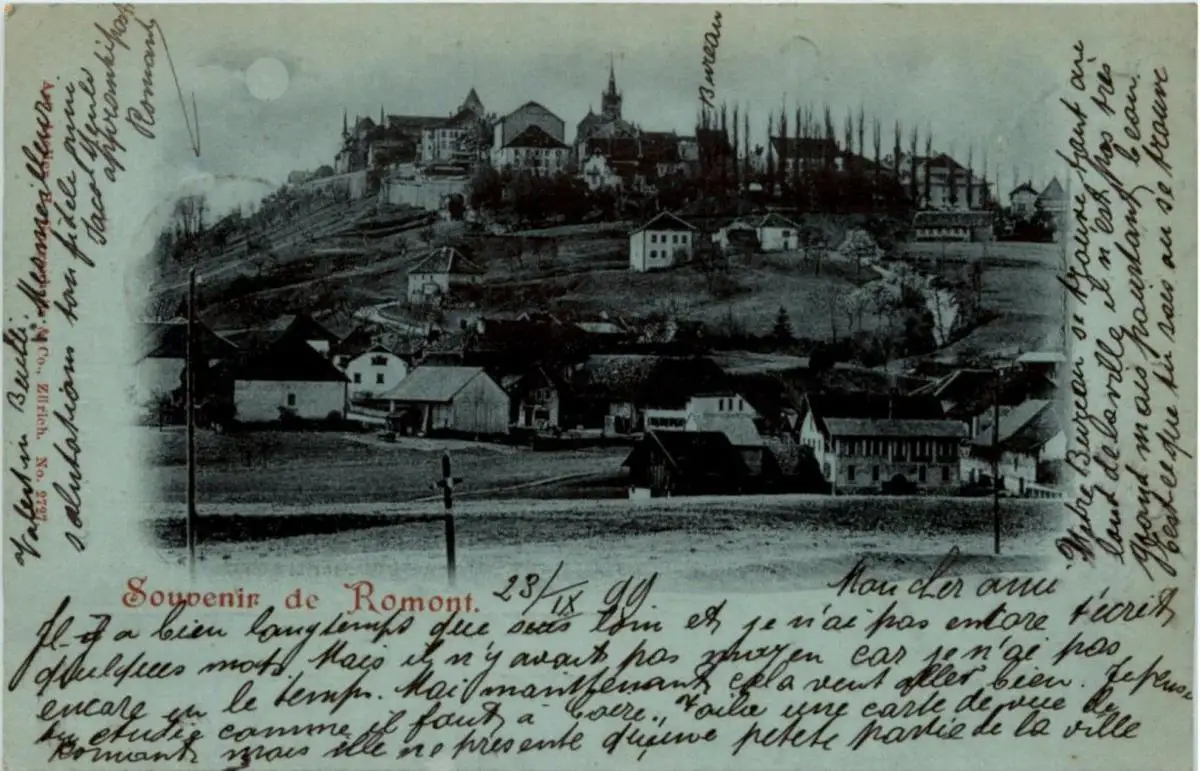 Souvenir de Romont.
23/IX 99
Mon cher ami
Il y a bien longtemps que suis loin et je n'ai pas encore t'écrit
quelques mots. Mais il n'y avait pas moyen car je n'ai pas
encore eu le temps. Mai maintenant cela veut aller bien. Je pense
tu étudie comme il faut à Voilà une carte de vue de
Romont mais elle ne présente qu'une petete partie de la ville
Notre Bureau se trouve haut
bout de la ville il n'est pas très
grand mais pourtant beau.
est-ce que tu vas où se trouve
Bureau
Valentin
salutations ton fidèle ami
Jacot Yules
Romont
Zürich. No. 2727